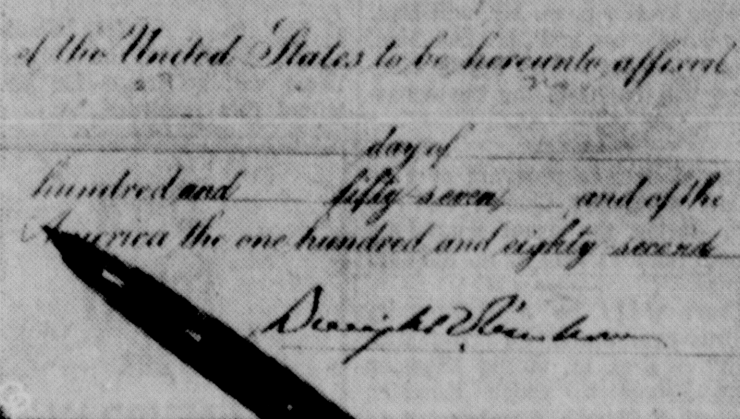 of the United States to be hereunto affixed
day of
hundred and fifty-seven, and of the
America the one hundred and eighty second
Dwight D. Eisenhower